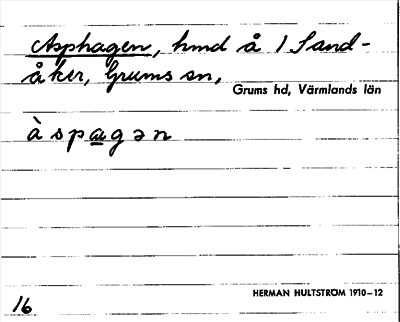 Asphagen, hmd å 1 Sand-
åker, Grums sn,
Grums hd, Värmlands län
àspagən
HERMAN HULTSTRÖM 1910–12
16